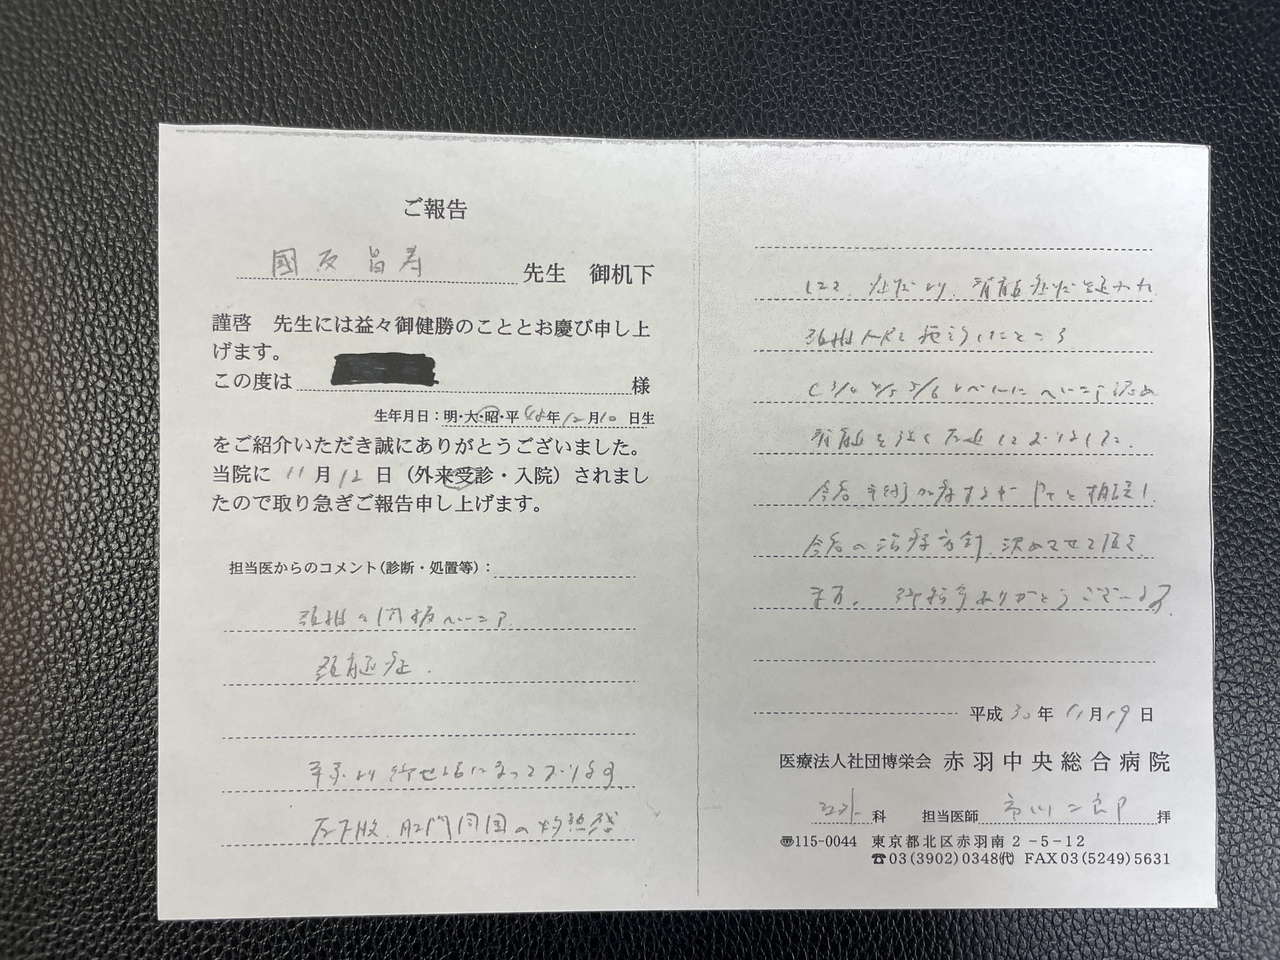 ご報告
國友昌寿 先生 御机下
謹啓 先生には益々御健勝のこととお慶び申し上
げます。
この度は 様
生年月日：明・大・昭・平 48年12月10日生
をご紹介いただき誠にありがとうございました。
当院に 11月12日（外来受診・入院）されまし
たので取り急ぎご報告申し上げます。
担当医からのコメント（診断・処置等）：
頚椎椎間板ヘルニア
頚髄症.
平素より御世話になっております。
左下肢、肛門周囲の灼熱感
にて、症状より、脊髄症状を疑われ
頚椎MRIを施行したところ
C3/4 4/5 5/6レベルにヘルニア認め
脊髄を強く圧迫しておりました.
今後手術加療するか Ptと相談し
今後の治療方針、決めさせて頂き
ます。 御紹介ありがとうございます
平成30年11月19日
医療法人社団博栄会 赤羽中央総合病院
科 担当医師 市川二郎 拝
〠115-0044 東京都北区赤羽南2-5-12
☎03(3902)0348㈹ FAX03(5249)5631